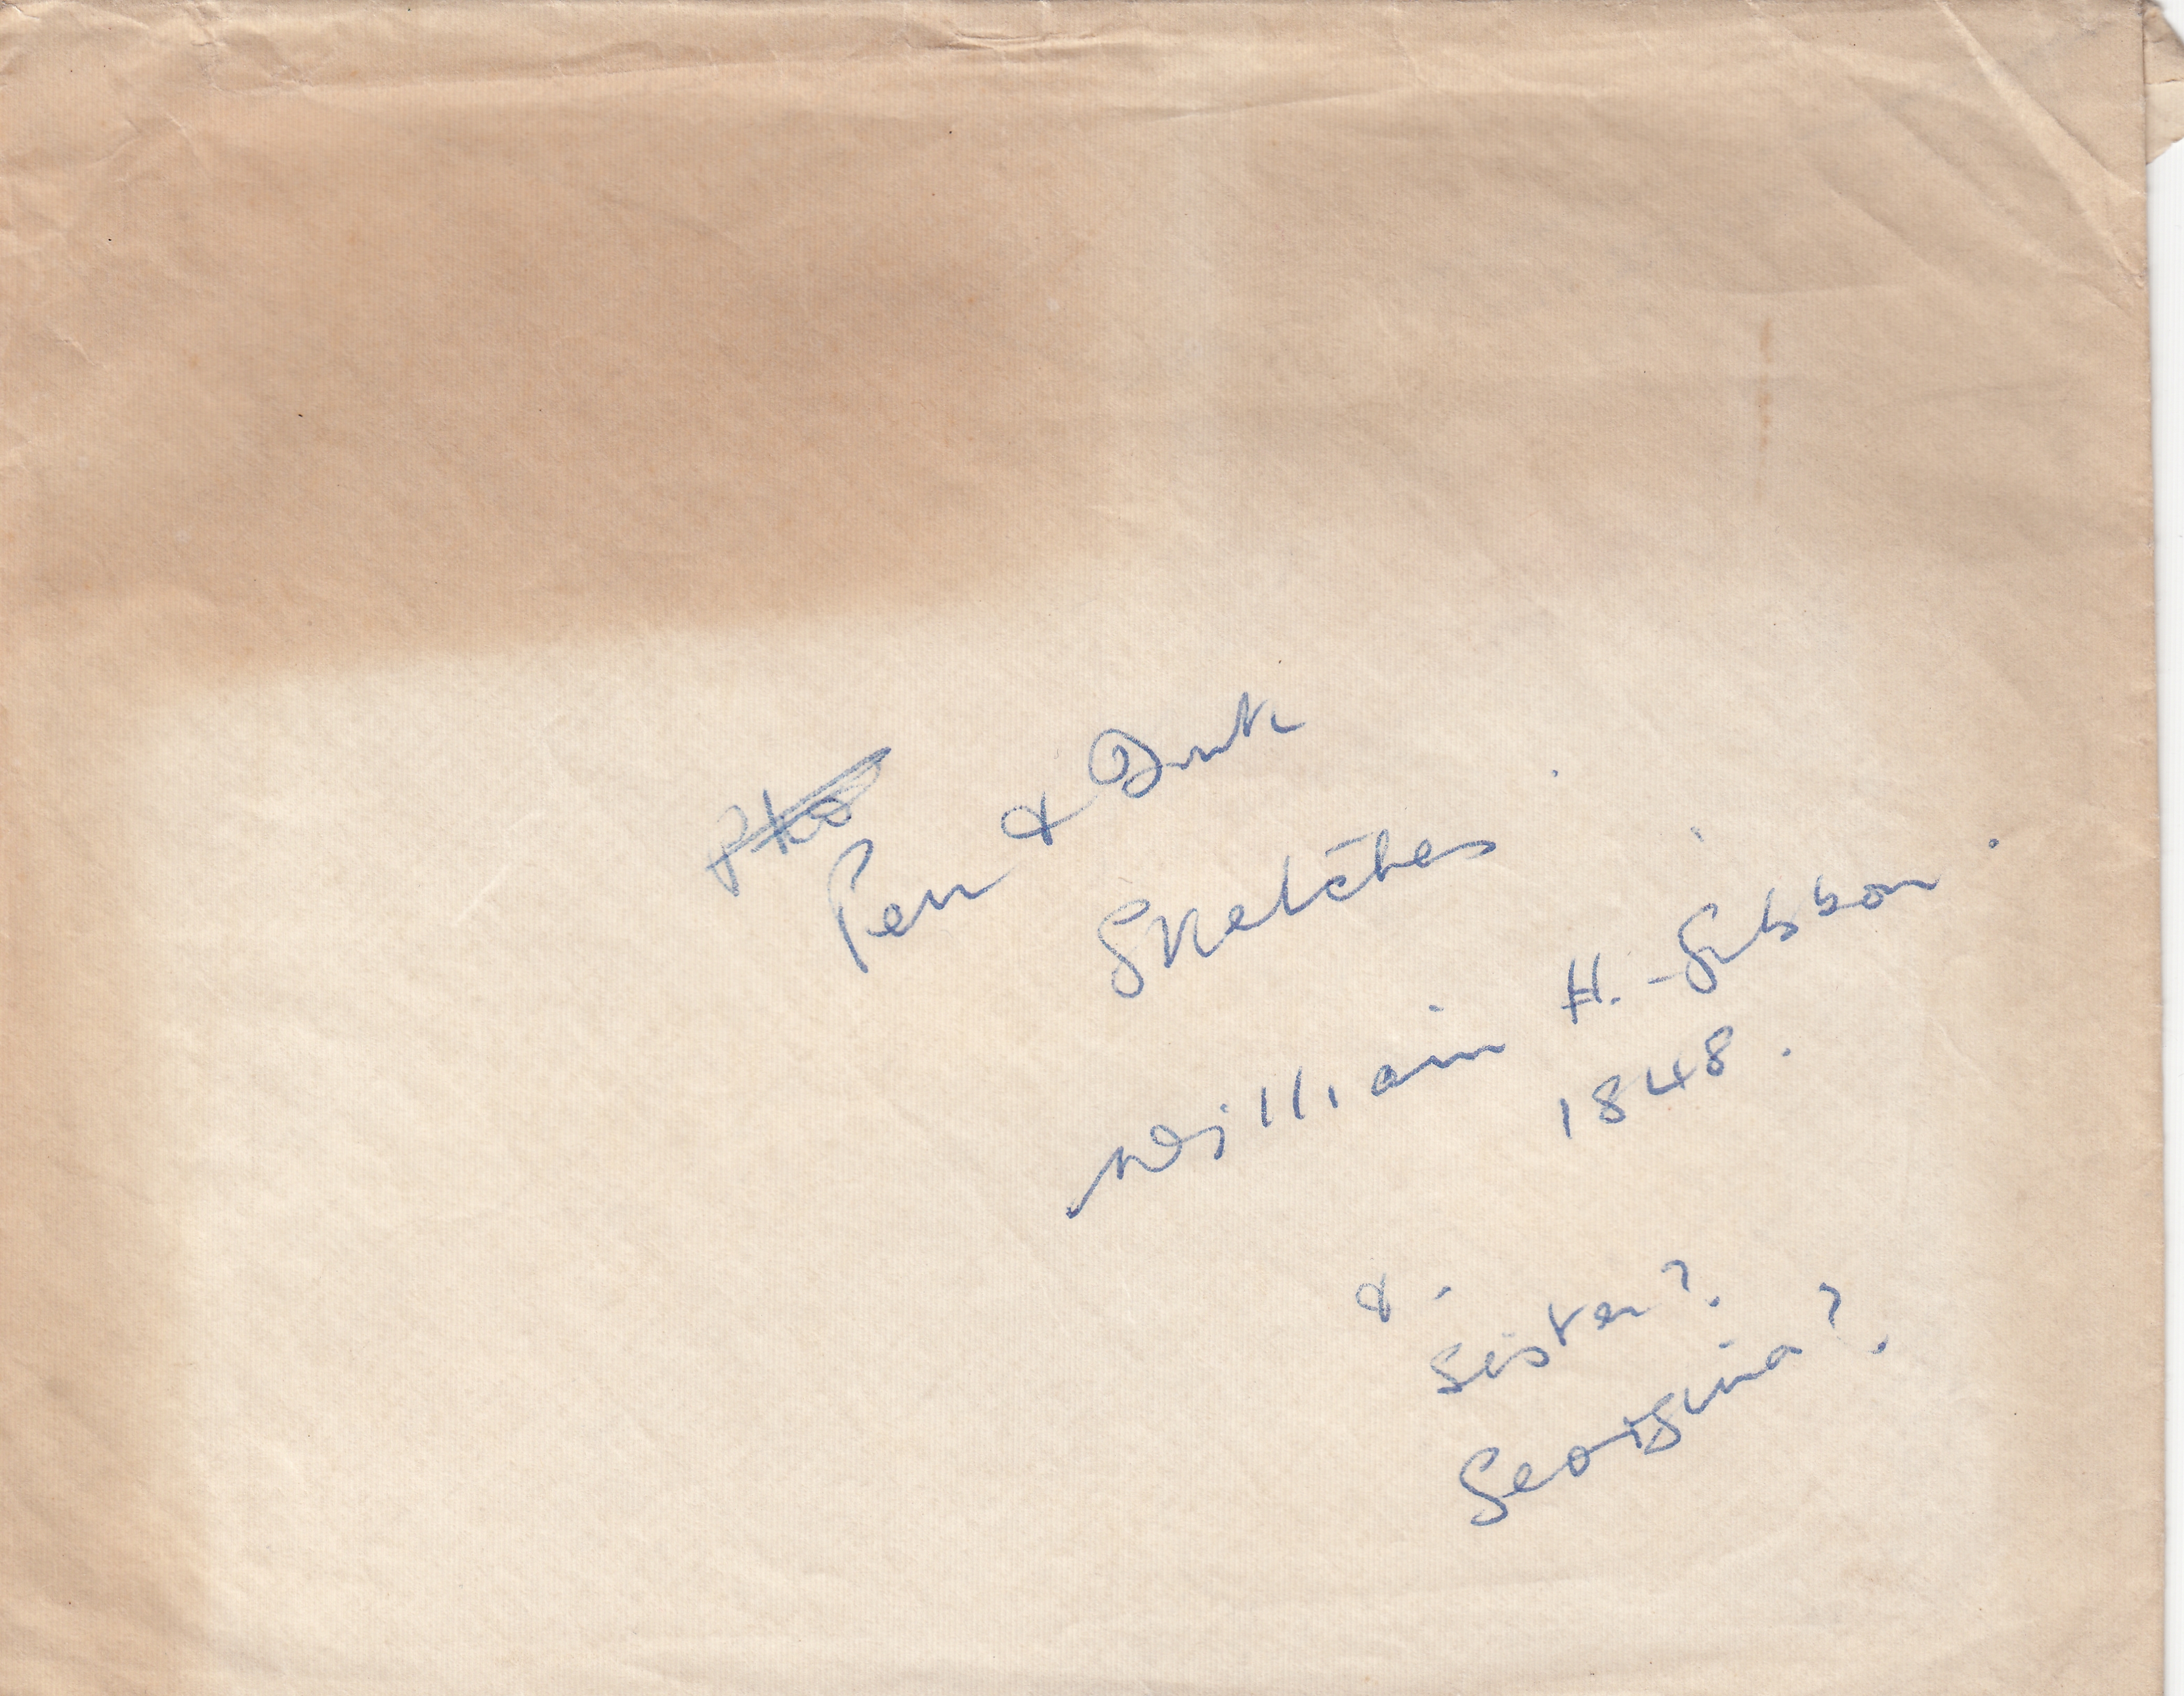 Pen & Ink
Sketches.
William H. Gibbon.
1848.
&
Sister?
Georgina?